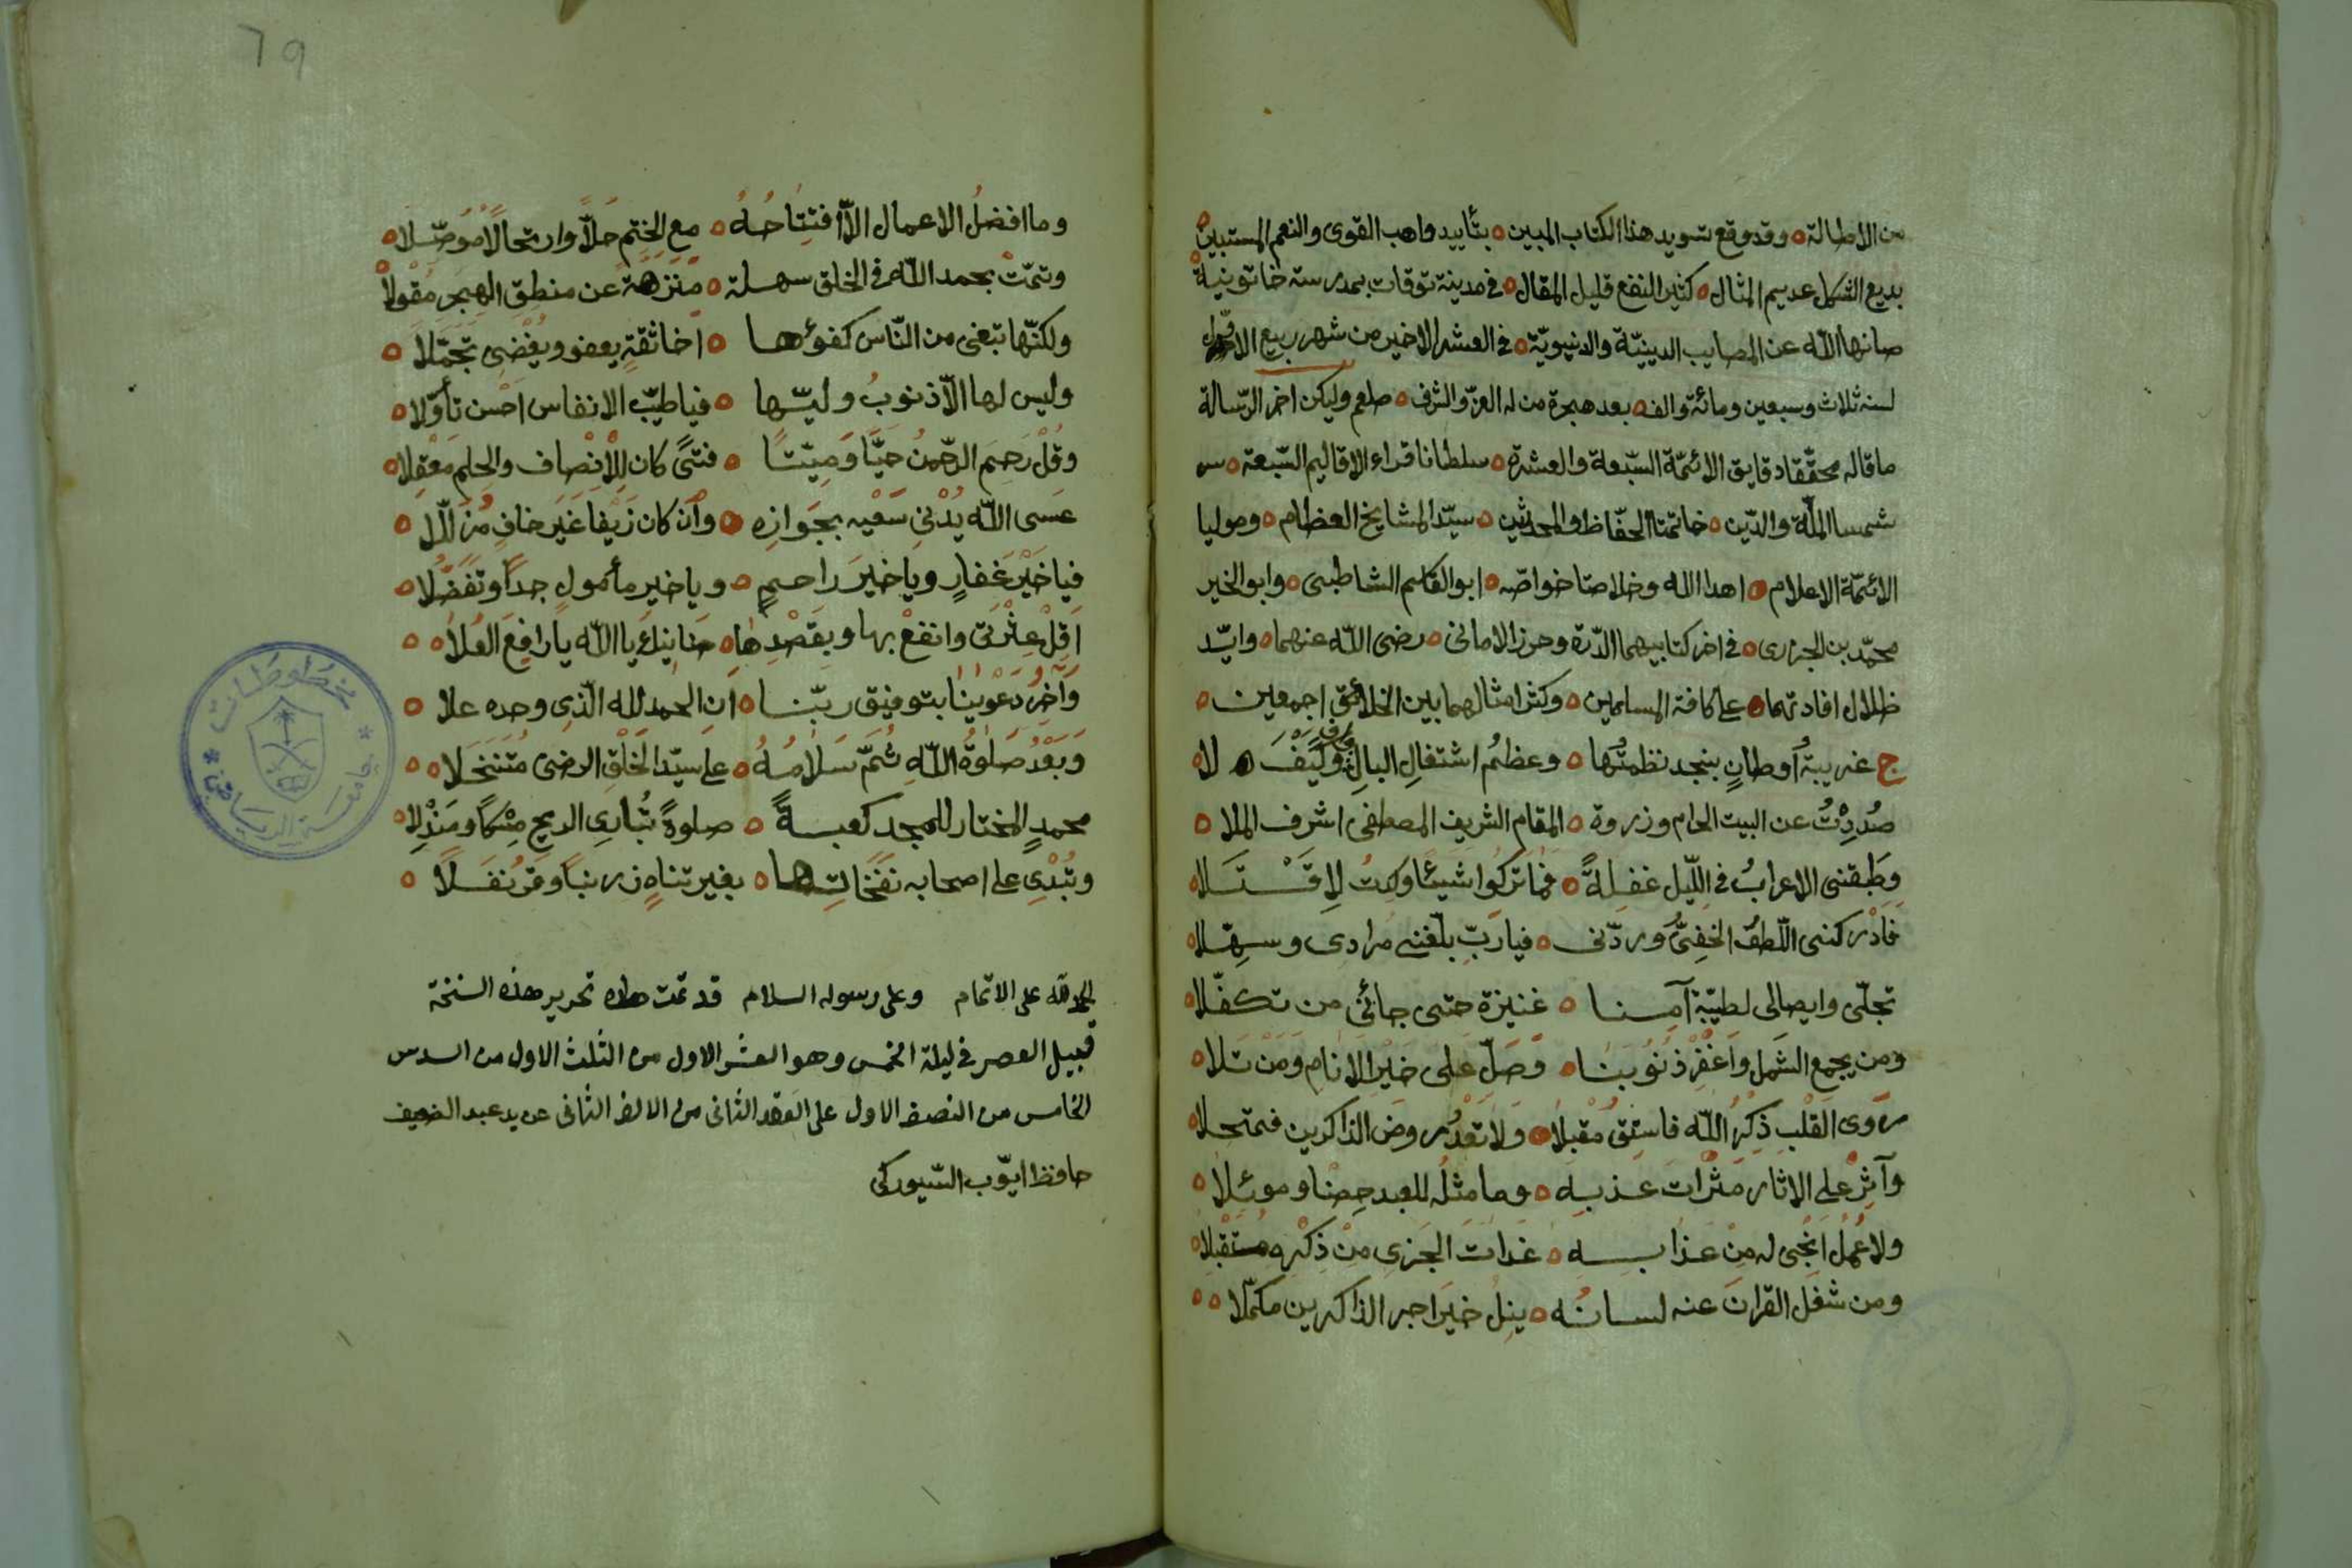 من الاطالة ٥ وقد وقع تسويد هذا الكتاب المبين ٥ بتأييد واهب القوى والنعم المستبين ٥
بديع الشكل عديم المثال ٥ كثير النفع قليل المقال ٥ فى مدينة توقات بمدرسة خاتونية ٥
صانها الله عن المصايب الدينيّة والدنيويّة ٥ فى العشر الاخير من شهر ربيع الاوّل
لسنة ثلاث وسبعين ومائة والف ٥ بعد هجرة من له العزّ والشرف ٥ صلعم وليكن اخر الرّسالة
ما قاله محقّقا دقايق الائمّة السّبعة والعشرة ٥ سلطانا قراء الاقاليم السّبعة ٥
شمسا الملّة والدّين ٥ خاتمتا الحفّاظ والمحدثين ٥ سيّدا المشايخ العظام ٥ وموليا
الائمّة الاعلام ٥ اهدا الله وخلاصتا خواصّه ٥ ابو القاسم الشاطبى ٥ وابو الخير
محمّد بن الجزرى ٥ فى اخر كتابيهما الدّرة وحرز الامانى ٥ رضى الله عنهما ٥ وايّد
ظلال افادتهما ٥ على كافة المسلمين ٥ وكثر امثالهما بين الخلائق اجمعين ٥
ج غريبةُ أوطانٍ بنجد نظمتُها ٥ وعظمُ اشتغالِ البالِ وافٍ وكَيْفَ لا ٥
صُدِدْتُ عن البيت الحرام وزروة ٥ المقام الشريف المصطفى اشرف الملا ٥
وطَبقنى الاعرابُ فى اللّيل غفلةً ٥ فما تركوا شيئًا وكدتُ لاقتَلا ٥
فادْركنى اللّطفُ الخفىُّ وردّنى ٥ فيا ربّ بلّغنى مرادى وسهّلا ٥
تجلّى وايصالى لطيّبة آمنا ٥ عنيزة حتى جائنى من تكفّلا ٥
ومن يجمع الشمل واغفِرْ ذنوبنا ٥ وصلّ على خير الانام ومن تلا ٥
روى القلب ذكرُ الله فاستقِ مقبلا ٥ ولا تعدُ روض الذاكرين فتمحلا ٥
وآثِرْ على الاثار مثرات عذبه ٥ وما مثله للعبد حصنا وموئلا ٥
ولا عملٌ انجى له من عذابه ٥ غدات الجزى من ذكره متقبلا ٥
ومن شغل القران عنه لسانُه ٥ ينلُ خير اجر الذاكرين مكمّلا ٥ ٥
وما افضلُ الاعمال الّا افتتاحُهُ ٥ مع الختم حلّاً وارتحالًا مُوصّلا ٥
وتمّت بحمد الله فى الخلق سهلة ٥ منزهة عن منطق الهجر مقولا ٥
ولكنّها تبغى من النّاس كفوئها ٥ اخا ثقةٍ يعفو ويغضى تجمّلا ٥
وليس لها الّا ذنوبُ وليّها ٥ فيا طيّب الانفاس احسن تأوّلا ٥
وقُلْ رَحِمَ الرّحمنُ حيًّا وميّتًا ٥ فتىً كان للانصاف والحلم معقلا ٥
عسى الله يُدْنى سَعْيه بجوازه ٥ وان كان زيفا غير خافٍ مُزلّلا ٥
فيا خيرَ غفارٍ ويا خيرَ راحمٍ ٥ ويا خير مأمولٍ جداً وتفضّلا ٥
اَقِلْ عثْرتى وانفعْ بها وبقصْدِها ٥ حنانيك يا الله يا رافعَ العُلا ٥ ٥
وآخِرُ دعوينا بتوفيق ربّنا ٥ ان الحمد لله الّذى وحده علا ٥
وبعدُ صلوةُ الله ثمّ سلامُهُ ٥ على سيّد الخلق الرضى متنخلا ٥ ٥
محمدٍ المختار للمجد كعبةً ٥ صلوةً تُبارى الريح مِسْكًا ومَنْدلا ٥
وتُبْدى على اصحابه نفحاتِها ٥ بغير تناهٍ زرنباً وقَرنفلا ٥
الحمد لله على الاتمام وعلى رسوله السلام قد تمت تحرير هذه النسخة
قبيل العصر فى ليلة الخمس وهو العشر الاول من الثلث الاول من السدس
الخامس من النصف الاول على العقد الثانى من الالف الثانى عن يد عبد الضعيف
حافظ ايّوب السّيوركى
مخطوطات
جامعة الرياض
79